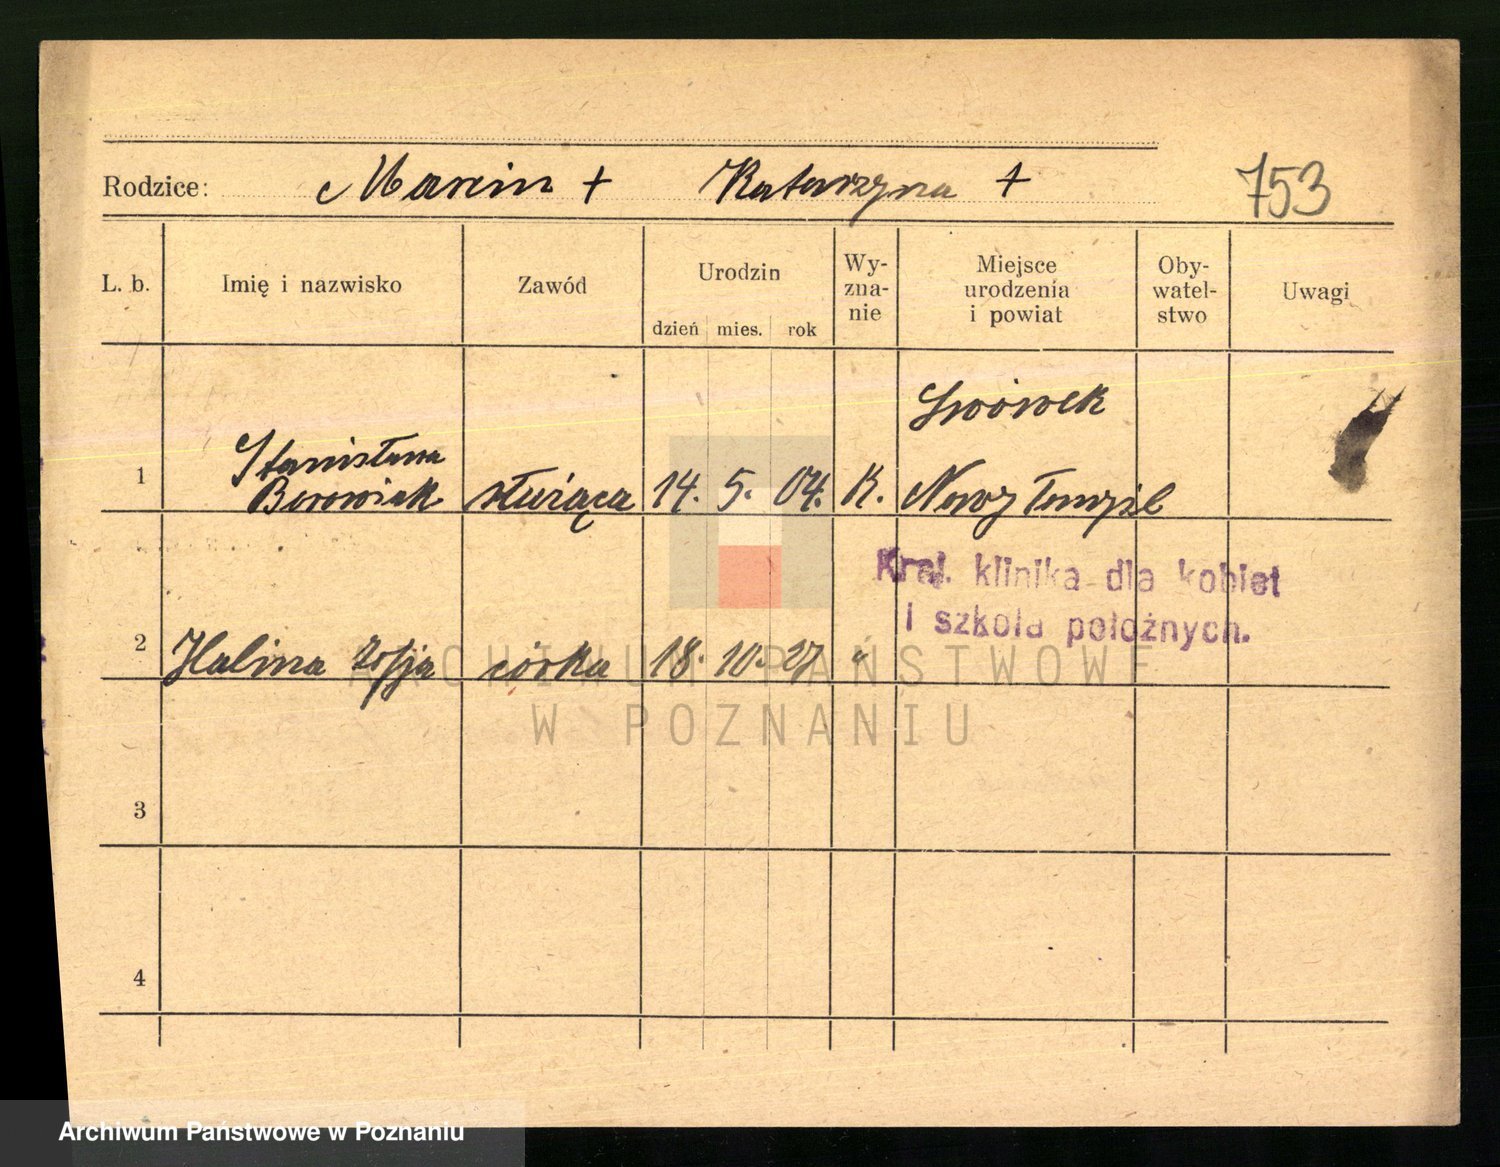 Rodzice: Marcin + Katarzyna + 753
L. b. Imię i nazwisko Zawód Urodzin dzień mies. rok Wy-zna-nie Miejsce urodzenia i powiat Oby-watel-stwo Uwagi
Lwówek
1 Stanisława Borowiak służąca 14. 5. 04. K. Nowy Tomyśl
Kraj. klinika dla kobiet
i szkoła położnych.
2 Halina Zofja córka 18. 10. 27 "
ARCHIWUM PAŃSTWOWE
W POZNANIU
3
4
Archiwum Państwowe w Poznaniu